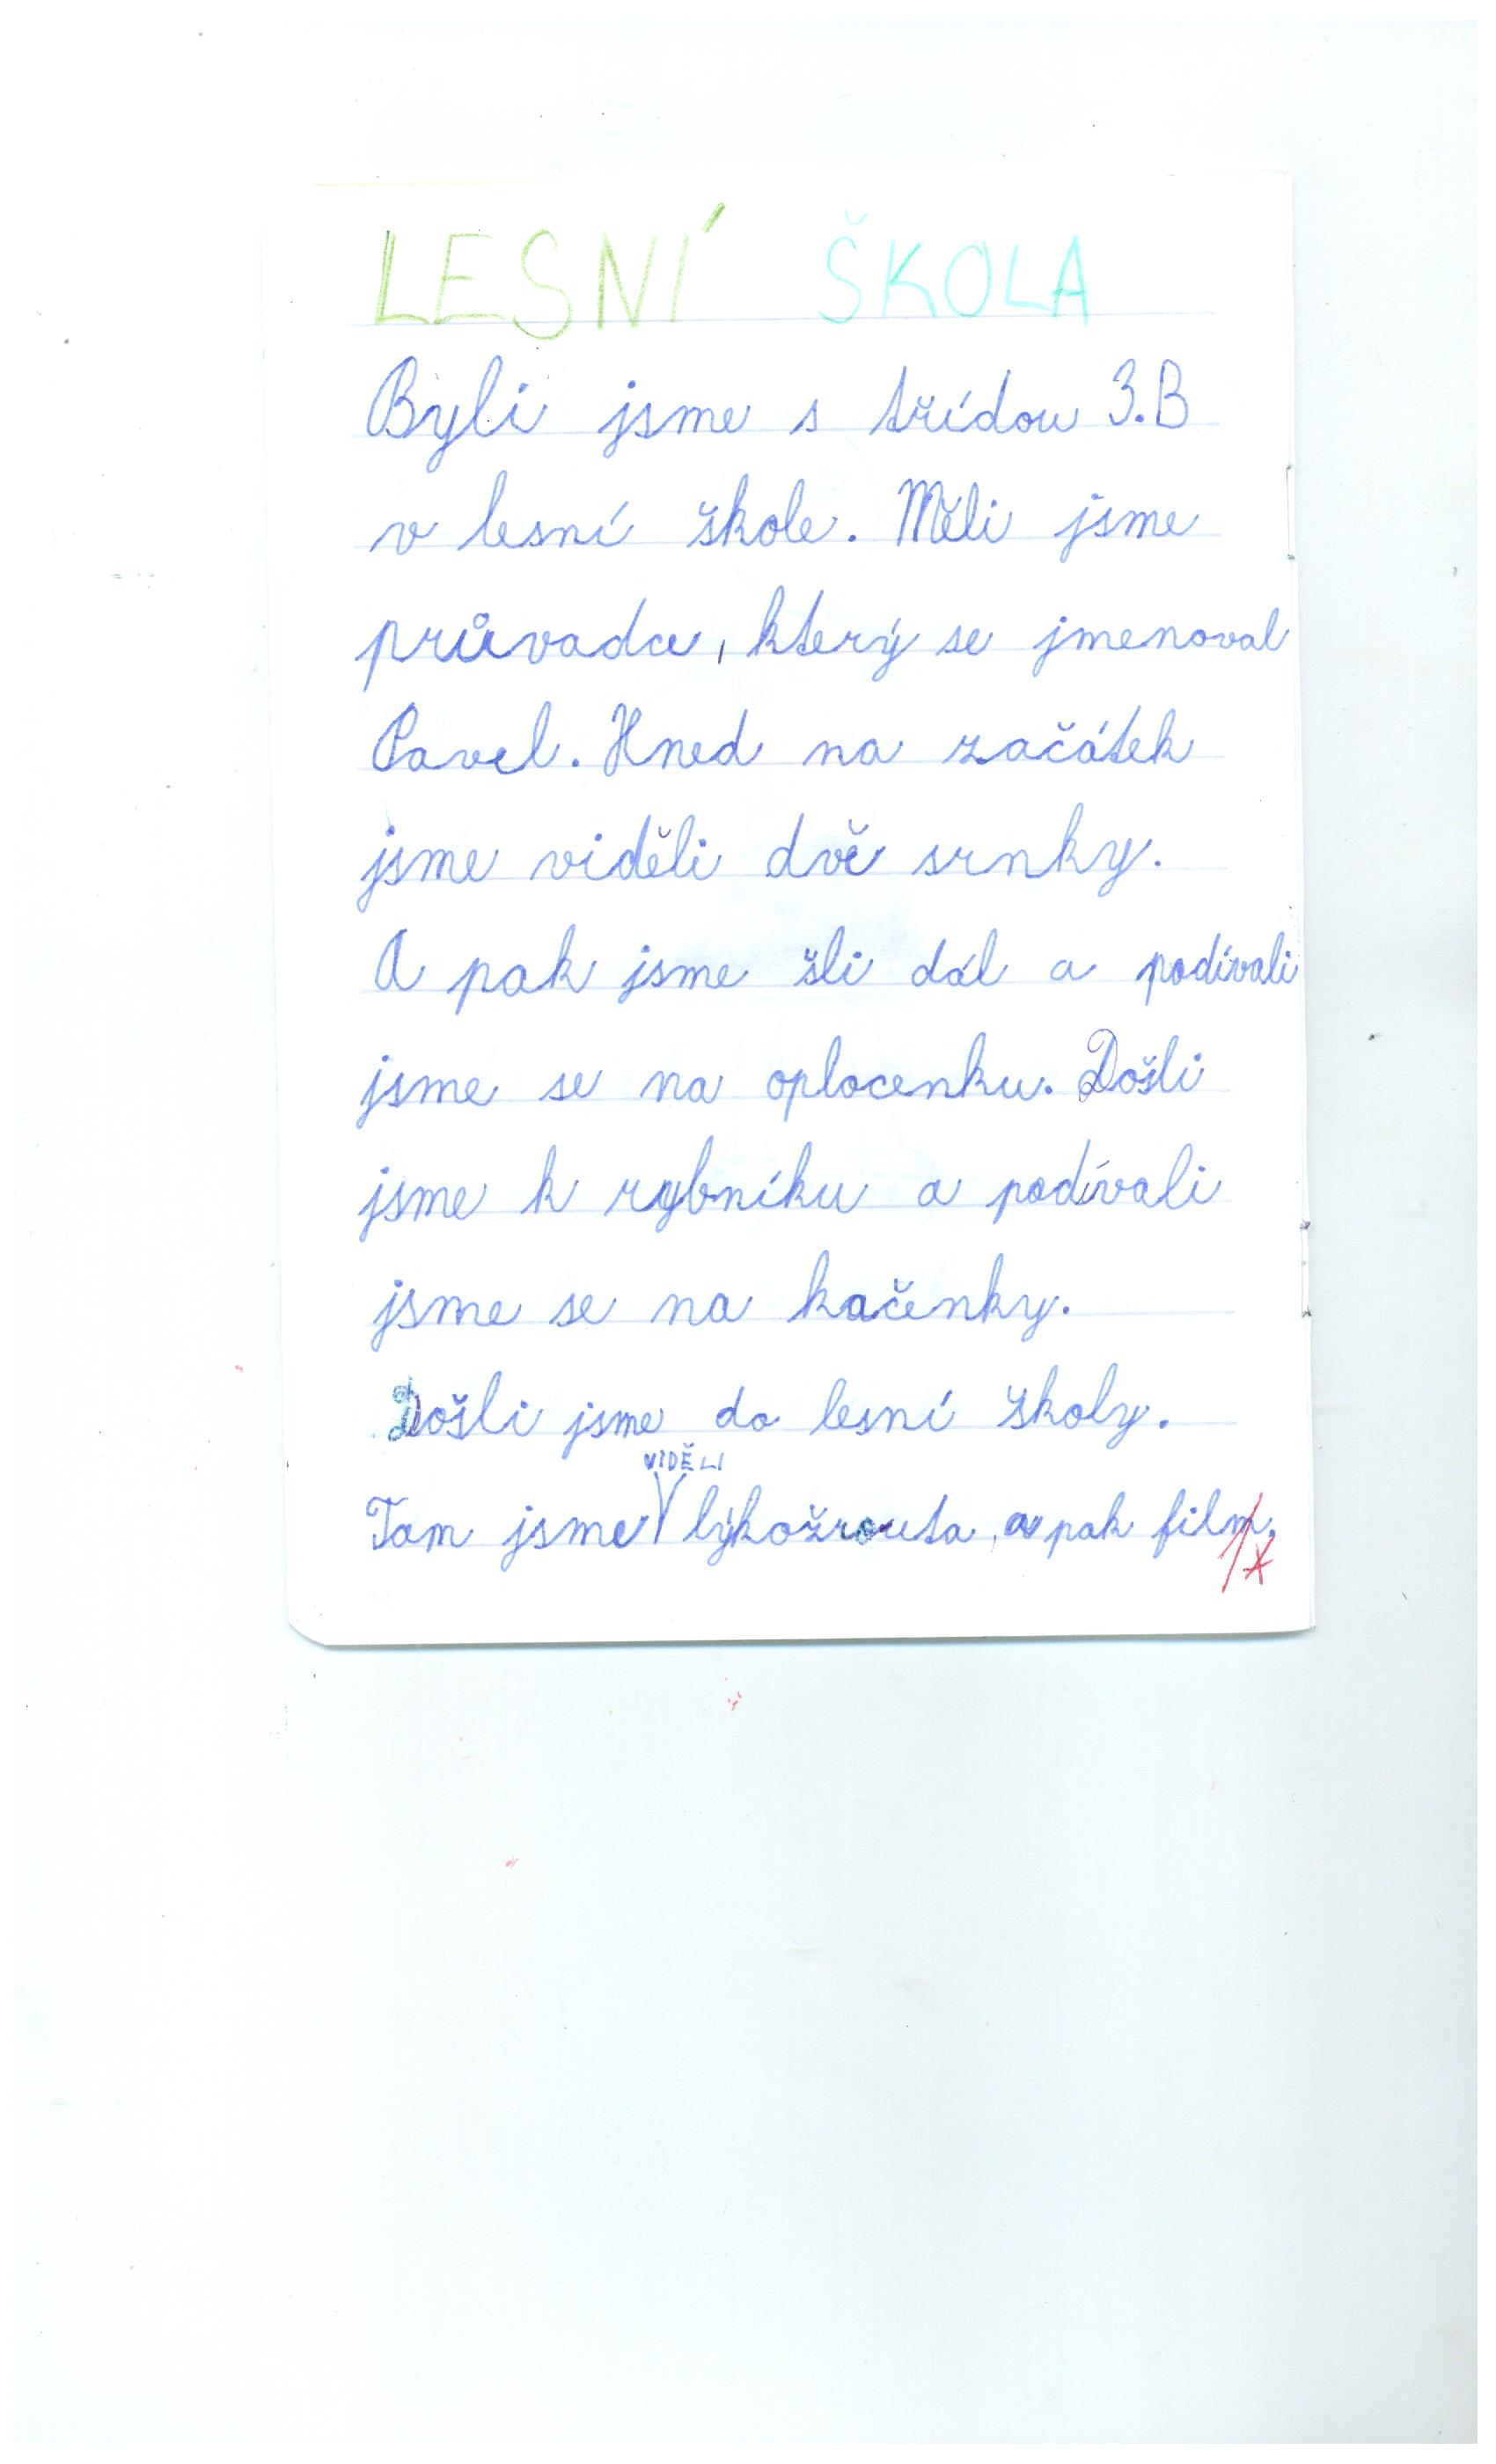 LESNÍ ŠKOLA
Byli jsme s třídou 3.B
v lesní škole. Měli jsme
průvodce, který se jmenoval
Pavel. Hned na začátek
jsme viděli dvě srnky.
A pak jsme šli dál a podívali
jsme se na oplocenku. Došli
jsme k rybníku a podívali
jsme se na kačenky.
Došli jsme do lesní školy.
VIDĚLI
Tam jsme lýkožrouta a pak film.
1*